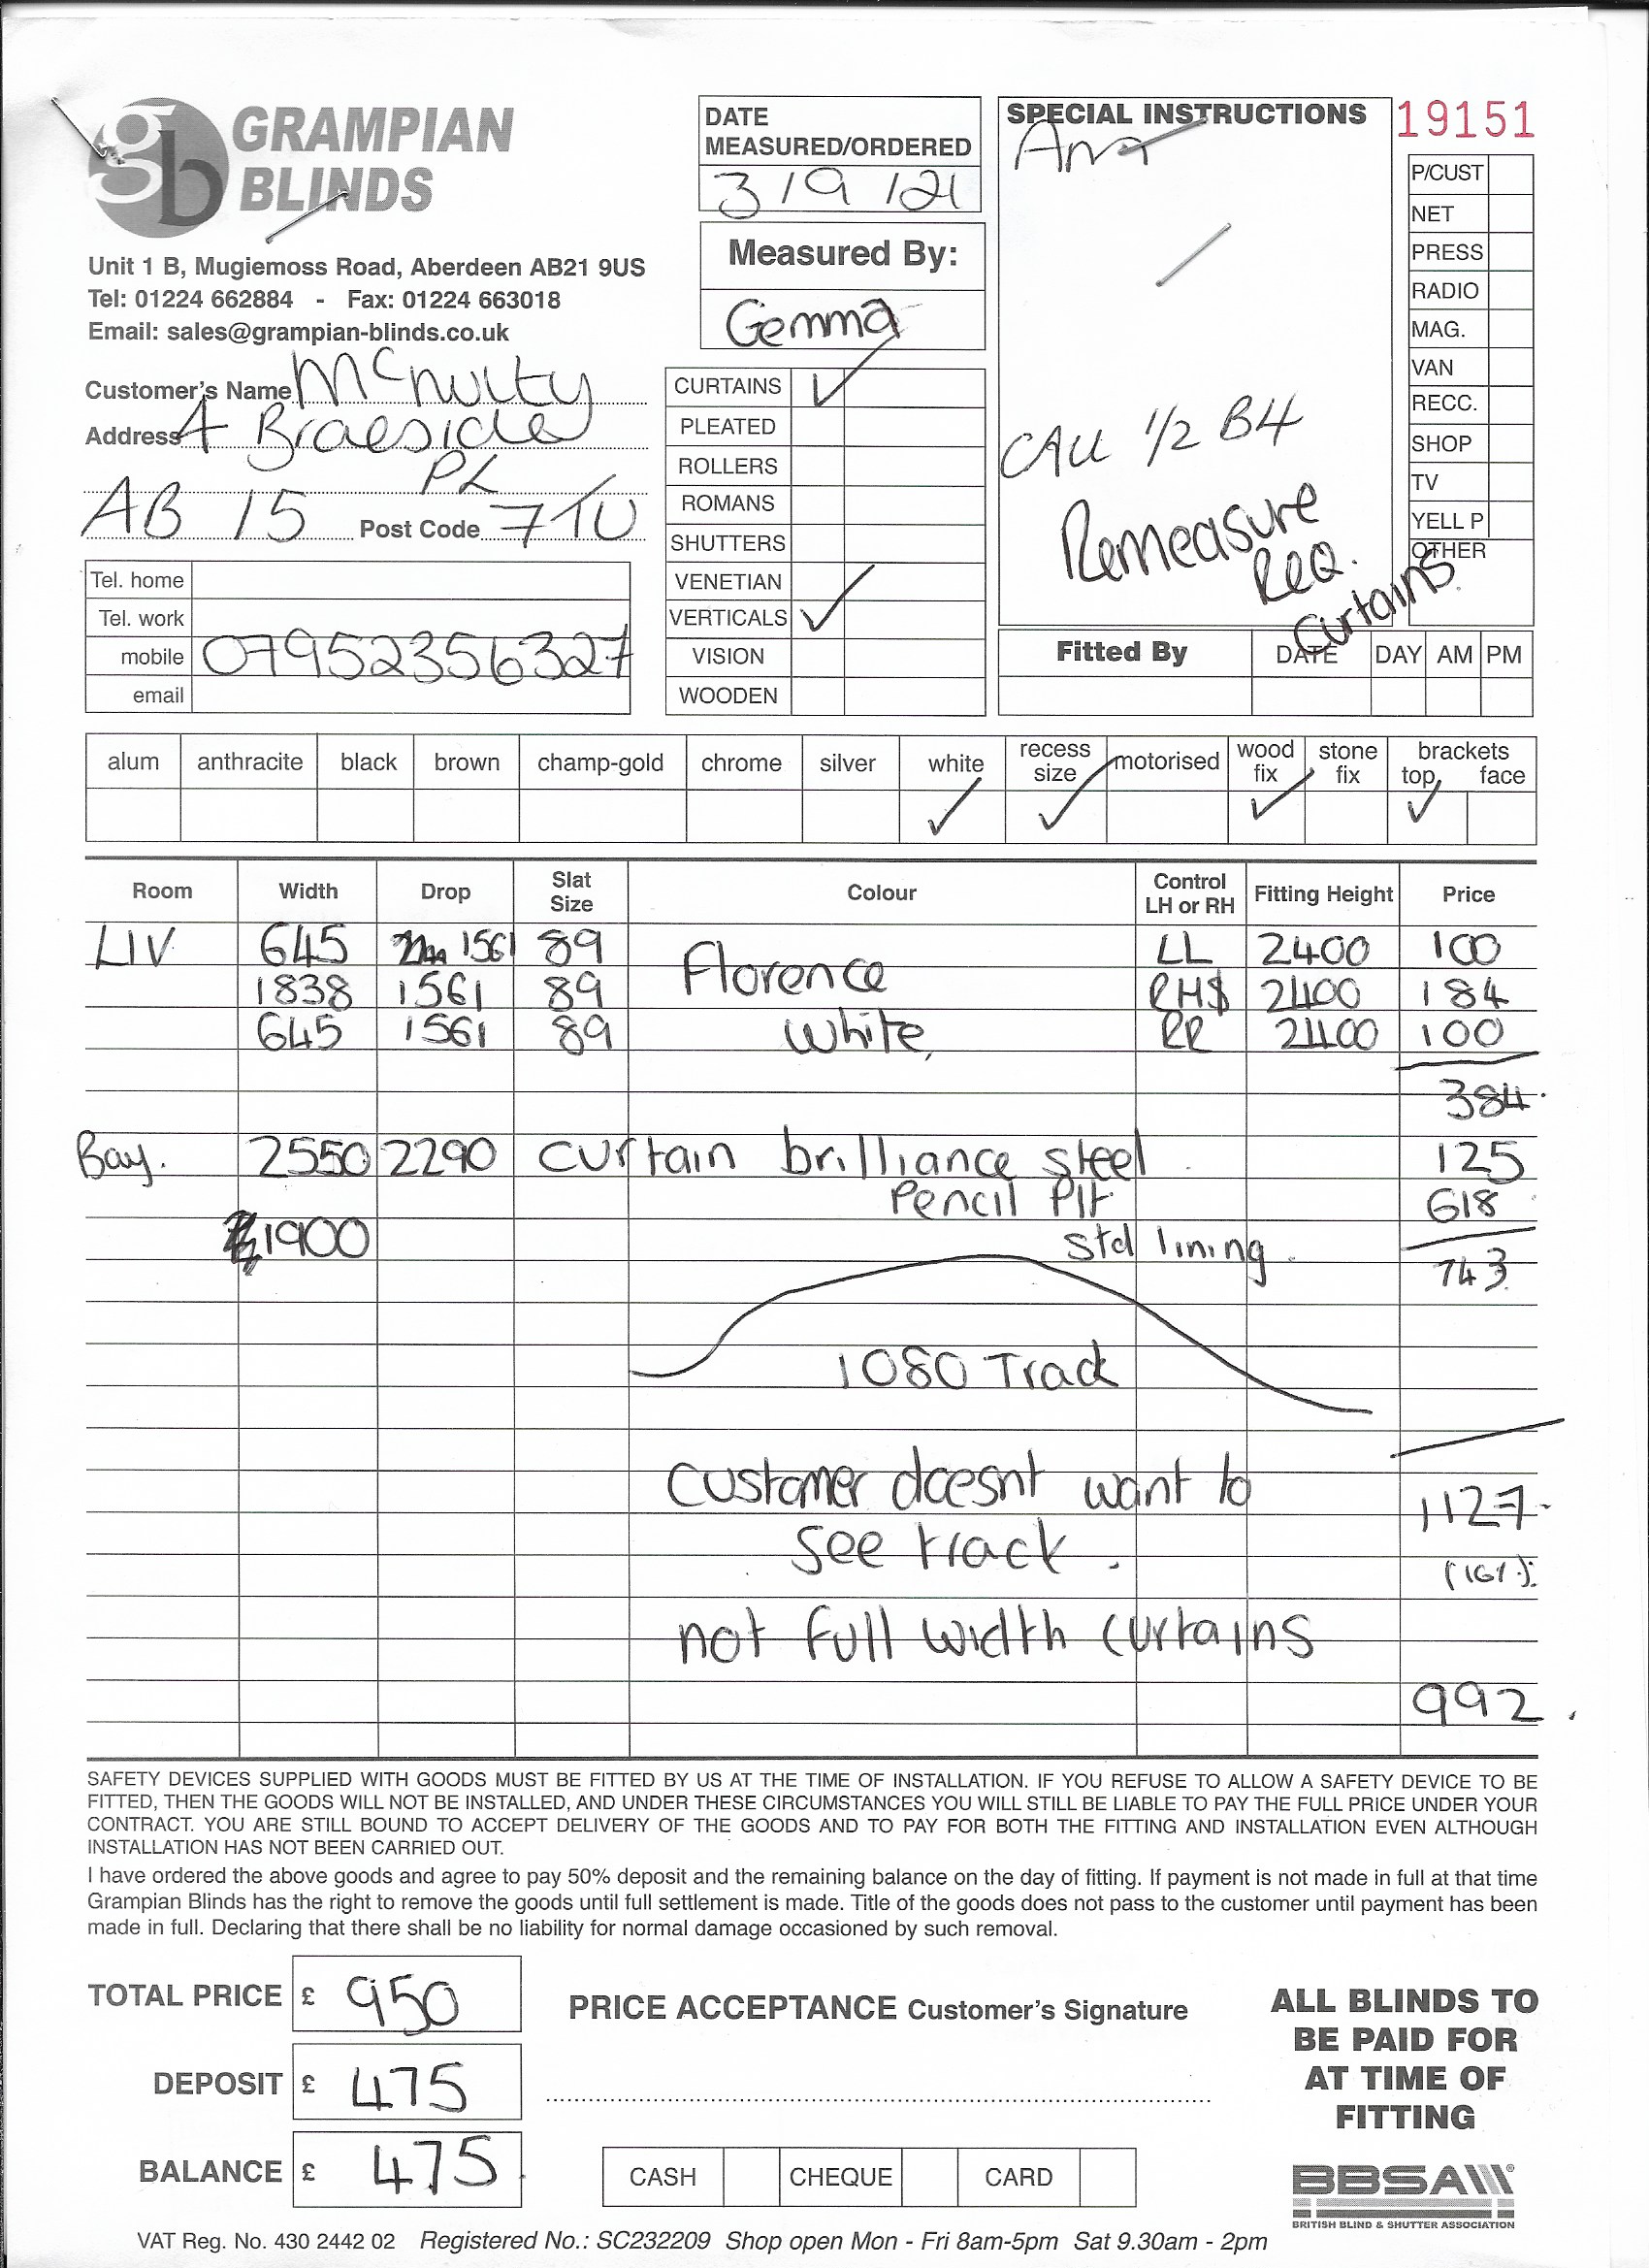 gb GRAMPIAN
BLINDS
Unit 1 B, Mugiemoss Road, Aberdeen AB21 9US
Tel: 01224 662884 - Fax: 01224 663018
Email: sales@grampian-blinds.co.uk
Customer's Name McNulty
Address 4 Braeside
PL
AB 15 Post Code 7TU
Tel. home
Tel. work
mobile 07952356327
email
DATE
MEASURED/ORDERED
3/9/21
Measured By:
Gemma
CURTAINS ✓
PLEATED
ROLLERS
ROMANS
SHUTTERS
VENETIAN
VERTICALS ✓
VISION
WOODEN
SPECIAL INSTRUCTIONS
CALL 1/2 B4
Remeasure
REQ.
Curtains
19151
P/CUST
NET
PRESS
RADIO
MAG.
VAN
RECC.
SHOP
TV
YELL P
OTHER
Fitted By DATE DAY AM PM
alum anthracite black brown champ-gold chrome silver white ✓ recess size ✓ motorised wood fix ✓ stone fix brackets top ✓ face
Room Width Drop Slat Size Colour Control LH or RH Fitting Height Price
LIV 645 1561 89 Florence LL 2400 100
1838 1561 89 RH$ 2400 184
645 1561 89 White RR 2400 100
384.
Bay. 2550 2290 curtain brilliance steel 125
Pencil Plt 618
1900 std lining. 743
1080 Track
Customer doesnt want to 1127-
see track.
not full width curtains
992.
SAFETY DEVICES SUPPLIED WITH GOODS MUST BE FITTED BY US AT THE TIME OF INSTALLATION. IF YOU REFUSE TO ALLOW A SAFETY DEVICE TO BE
FITTED, THEN THE GOODS WILL NOT BE INSTALLED, AND UNDER THESE CIRCUMSTANCES YOU WILL STILL BE LIABLE TO PAY THE FULL PRICE UNDER YOUR
CONTRACT. YOU ARE STILL BOUND TO ACCEPT DELIVERY OF THE GOODS AND TO PAY FOR BOTH THE FITTING AND INSTALLATION EVEN ALTHOUGH
INSTALLATION HAS NOT BEEN CARRIED OUT.
I have ordered the above goods and agree to pay 50% deposit and the remaining balance on the day of fitting. If payment is not made in full at that time
Grampian Blinds has the right to remove the goods until full settlement is made. Title of the goods does not pass to the customer until payment has been
made in full. Declaring that there shall be no liability for normal damage occasioned by such removal.
TOTAL PRICE £ 950
DEPOSIT £ 475
BALANCE £ 475
PRICE ACCEPTANCE Customer's Signature
CASH CHEQUE CARD
ALL BLINDS TO
BE PAID FOR
AT TIME OF
FITTING
BBSA
BRITISH BLIND & SHUTTER ASSOCIATION
VAT Reg. No. 430 2442 02 Registered No.: SC232209 Shop open Mon - Fri 8am-5pm Sat 9.30am - 2pm